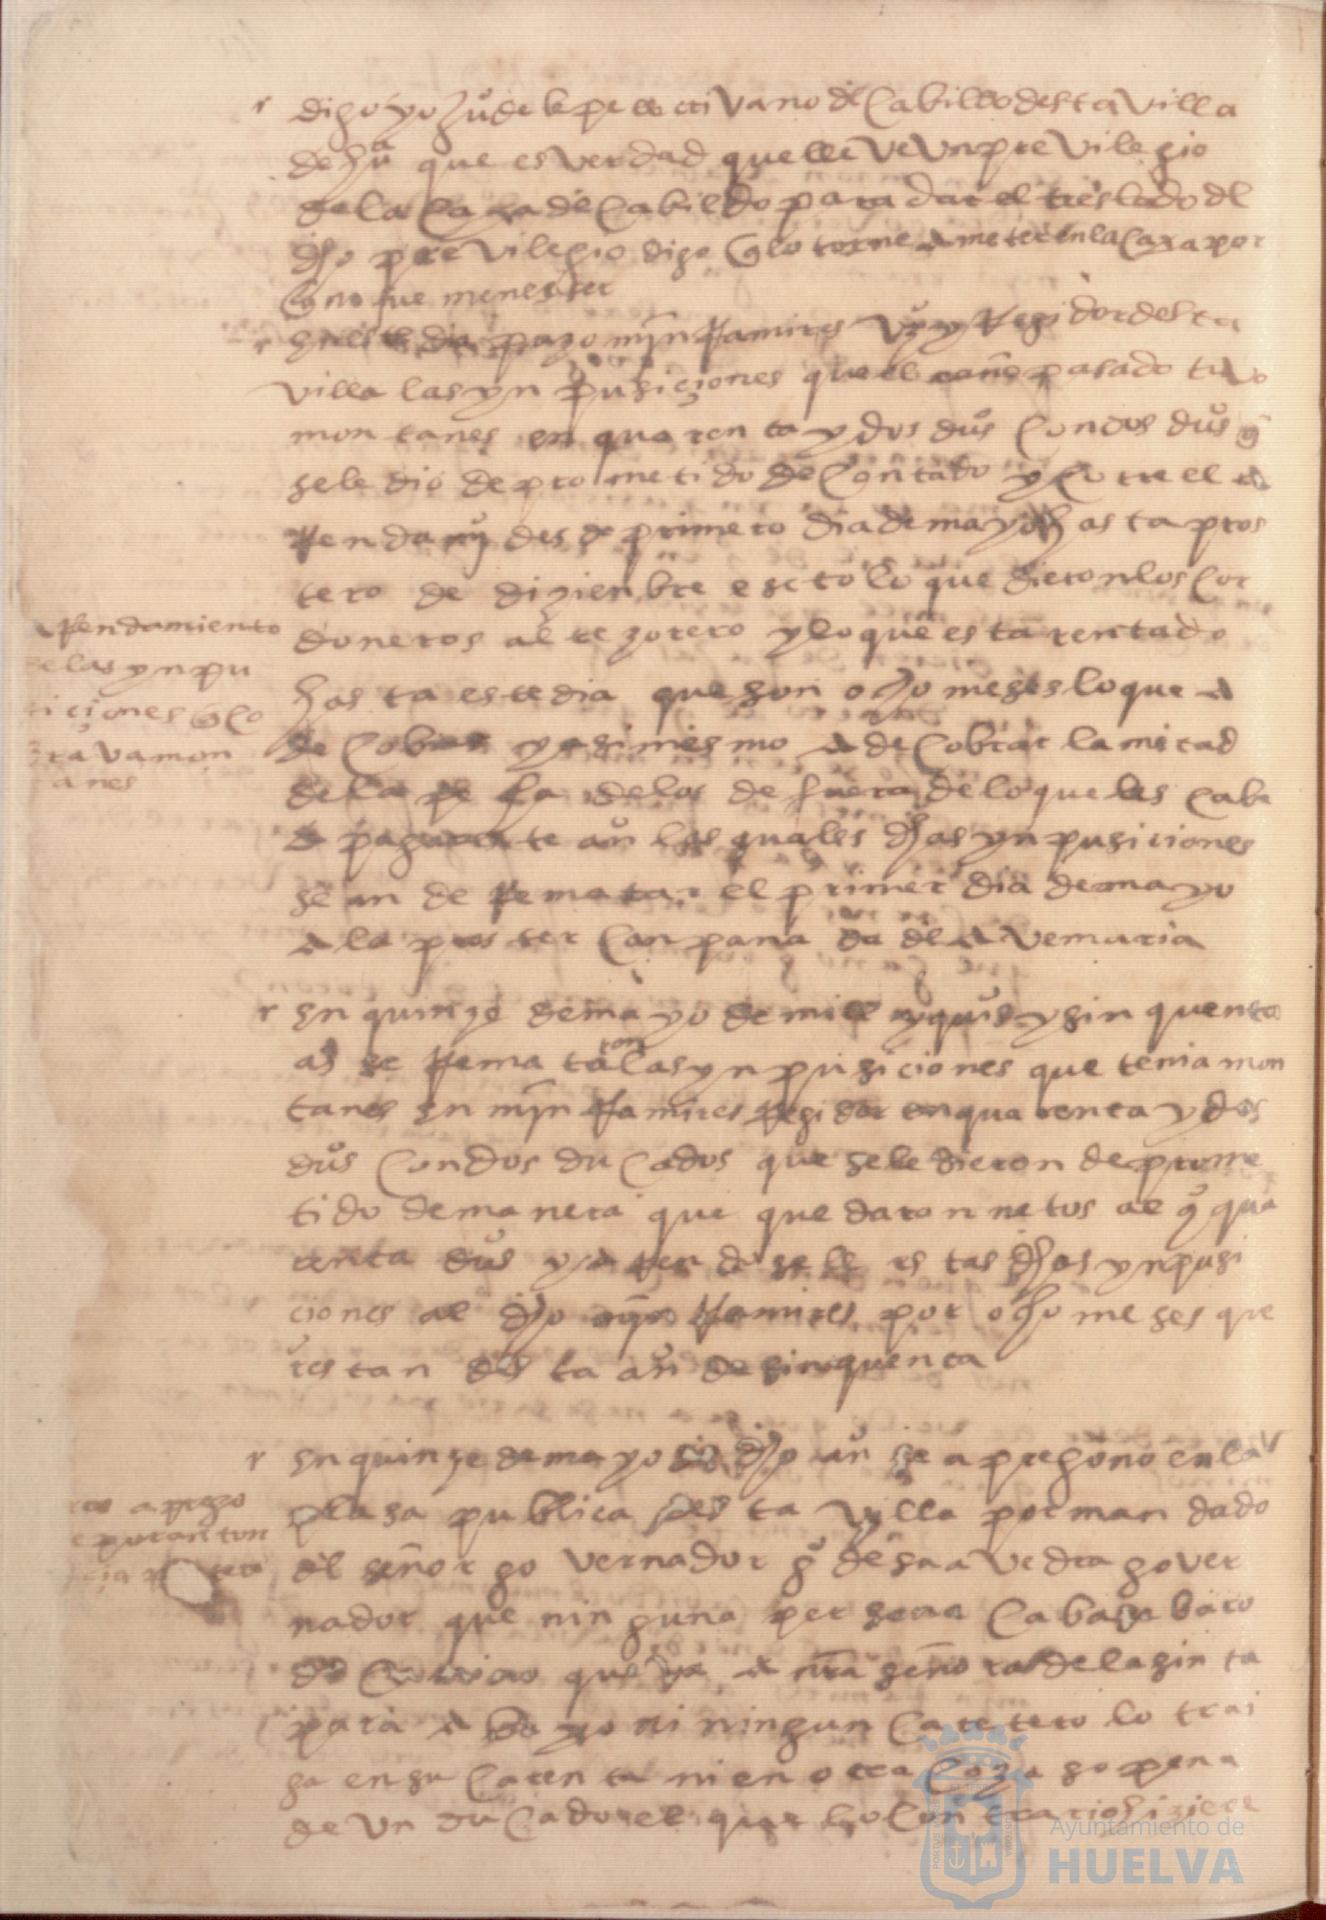 digo yo juº de lepe escrivano del Cabilldo desta Villa
de hua que es Verdad que lleve Un preVilegio
de la Caxa de Cabildo para dar el treslado dl
dho preVilegio digo q lo torne a meter en la Caxa por
q no fue menester
este dia puzo min Ramires Vº y Regidor desta
Villa las ynpusiçiones que el año pasado tuvo
montanes en quarenta y dos duºs Con dos duºs q
se le dio de prometido de Contado y Corre el a
Rendamyº desde primero dia de mayo hasta pros
tero de dizienbre eseto lo que dieron los Cor
doneros al tezorero y lo que esta rentado
hasta este dia que son ocho meses lo que a
de Cobrar y asimesmo a de Cobrar la mitad
de la de los de fuera de lo que les Cabe
a pagar este añ las quales dhas ynpusiciones
se an de Rematar el primer dia de mayo
a la proster Canpana da del aVemaria
Arendamiento
de las ynpu
siçiones q Co
brava mon
tanes
En quinze de mayo de mill y quiºs y sinquenta
aºs se Remataron las ynpusiciones que tenia mon
tanes en min Ramires Regidor en quarenta y dos
duºs Con dos duCados que se le dieron de prome
tido de manera que quedaron netos al qº qua
renta duºs y a Rendosele estas dhas ynpusi
ciones al dho min Ramires por ocho meses que
restan desta añ de sinquenta
En quinze de mayo del dho añ se apregono en la
plasa publica desta Villa por mandado
del señor governador gº de saavedra gover
nador que ninguna persona Cabase baro
del que va a nra señora de la sinta
para a ni ningun Caretero lo trai
ga en su Careta ni en otra Coza so pena
de Un duCado el que lo Contrario hiziere
aprego
Ayuntamiento de
HUELVA